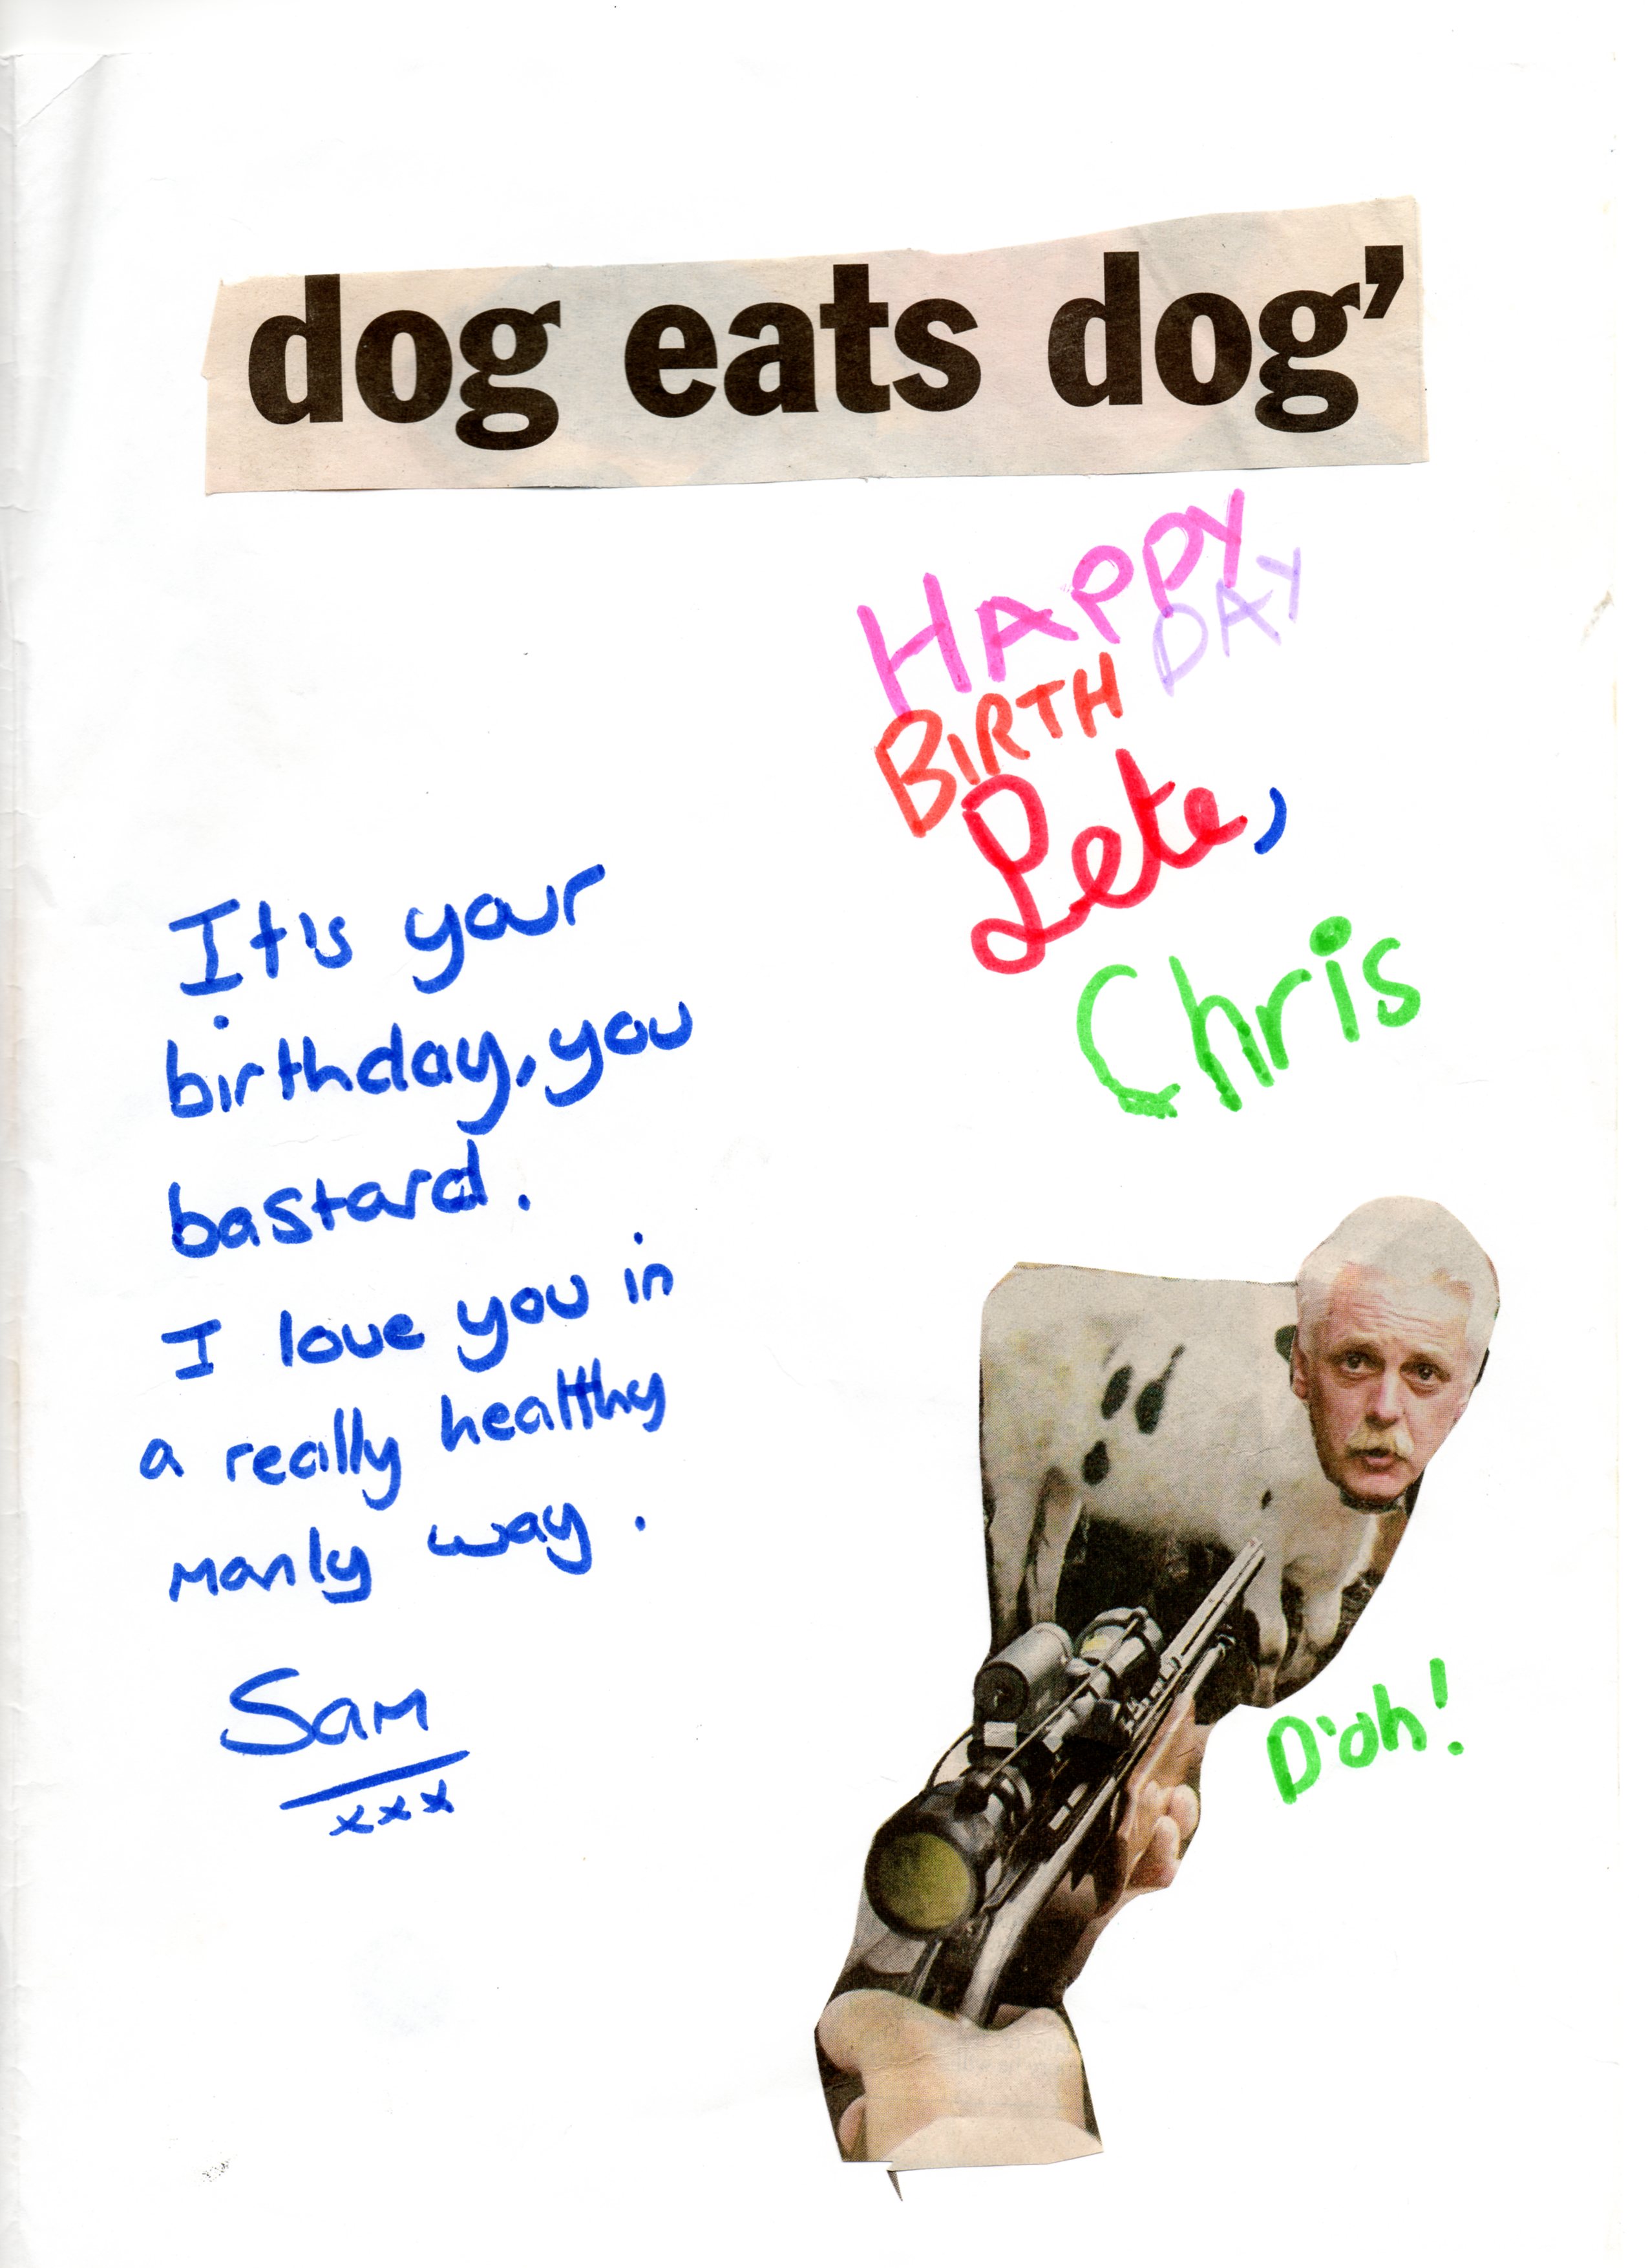 dog eats dog'
HAPPY
BIRTH DAY
Pete,
Chris
It's your
birthday, you
bastard.
I love you in
a really healthy
manly way.
Sam
xxx
D'oh!